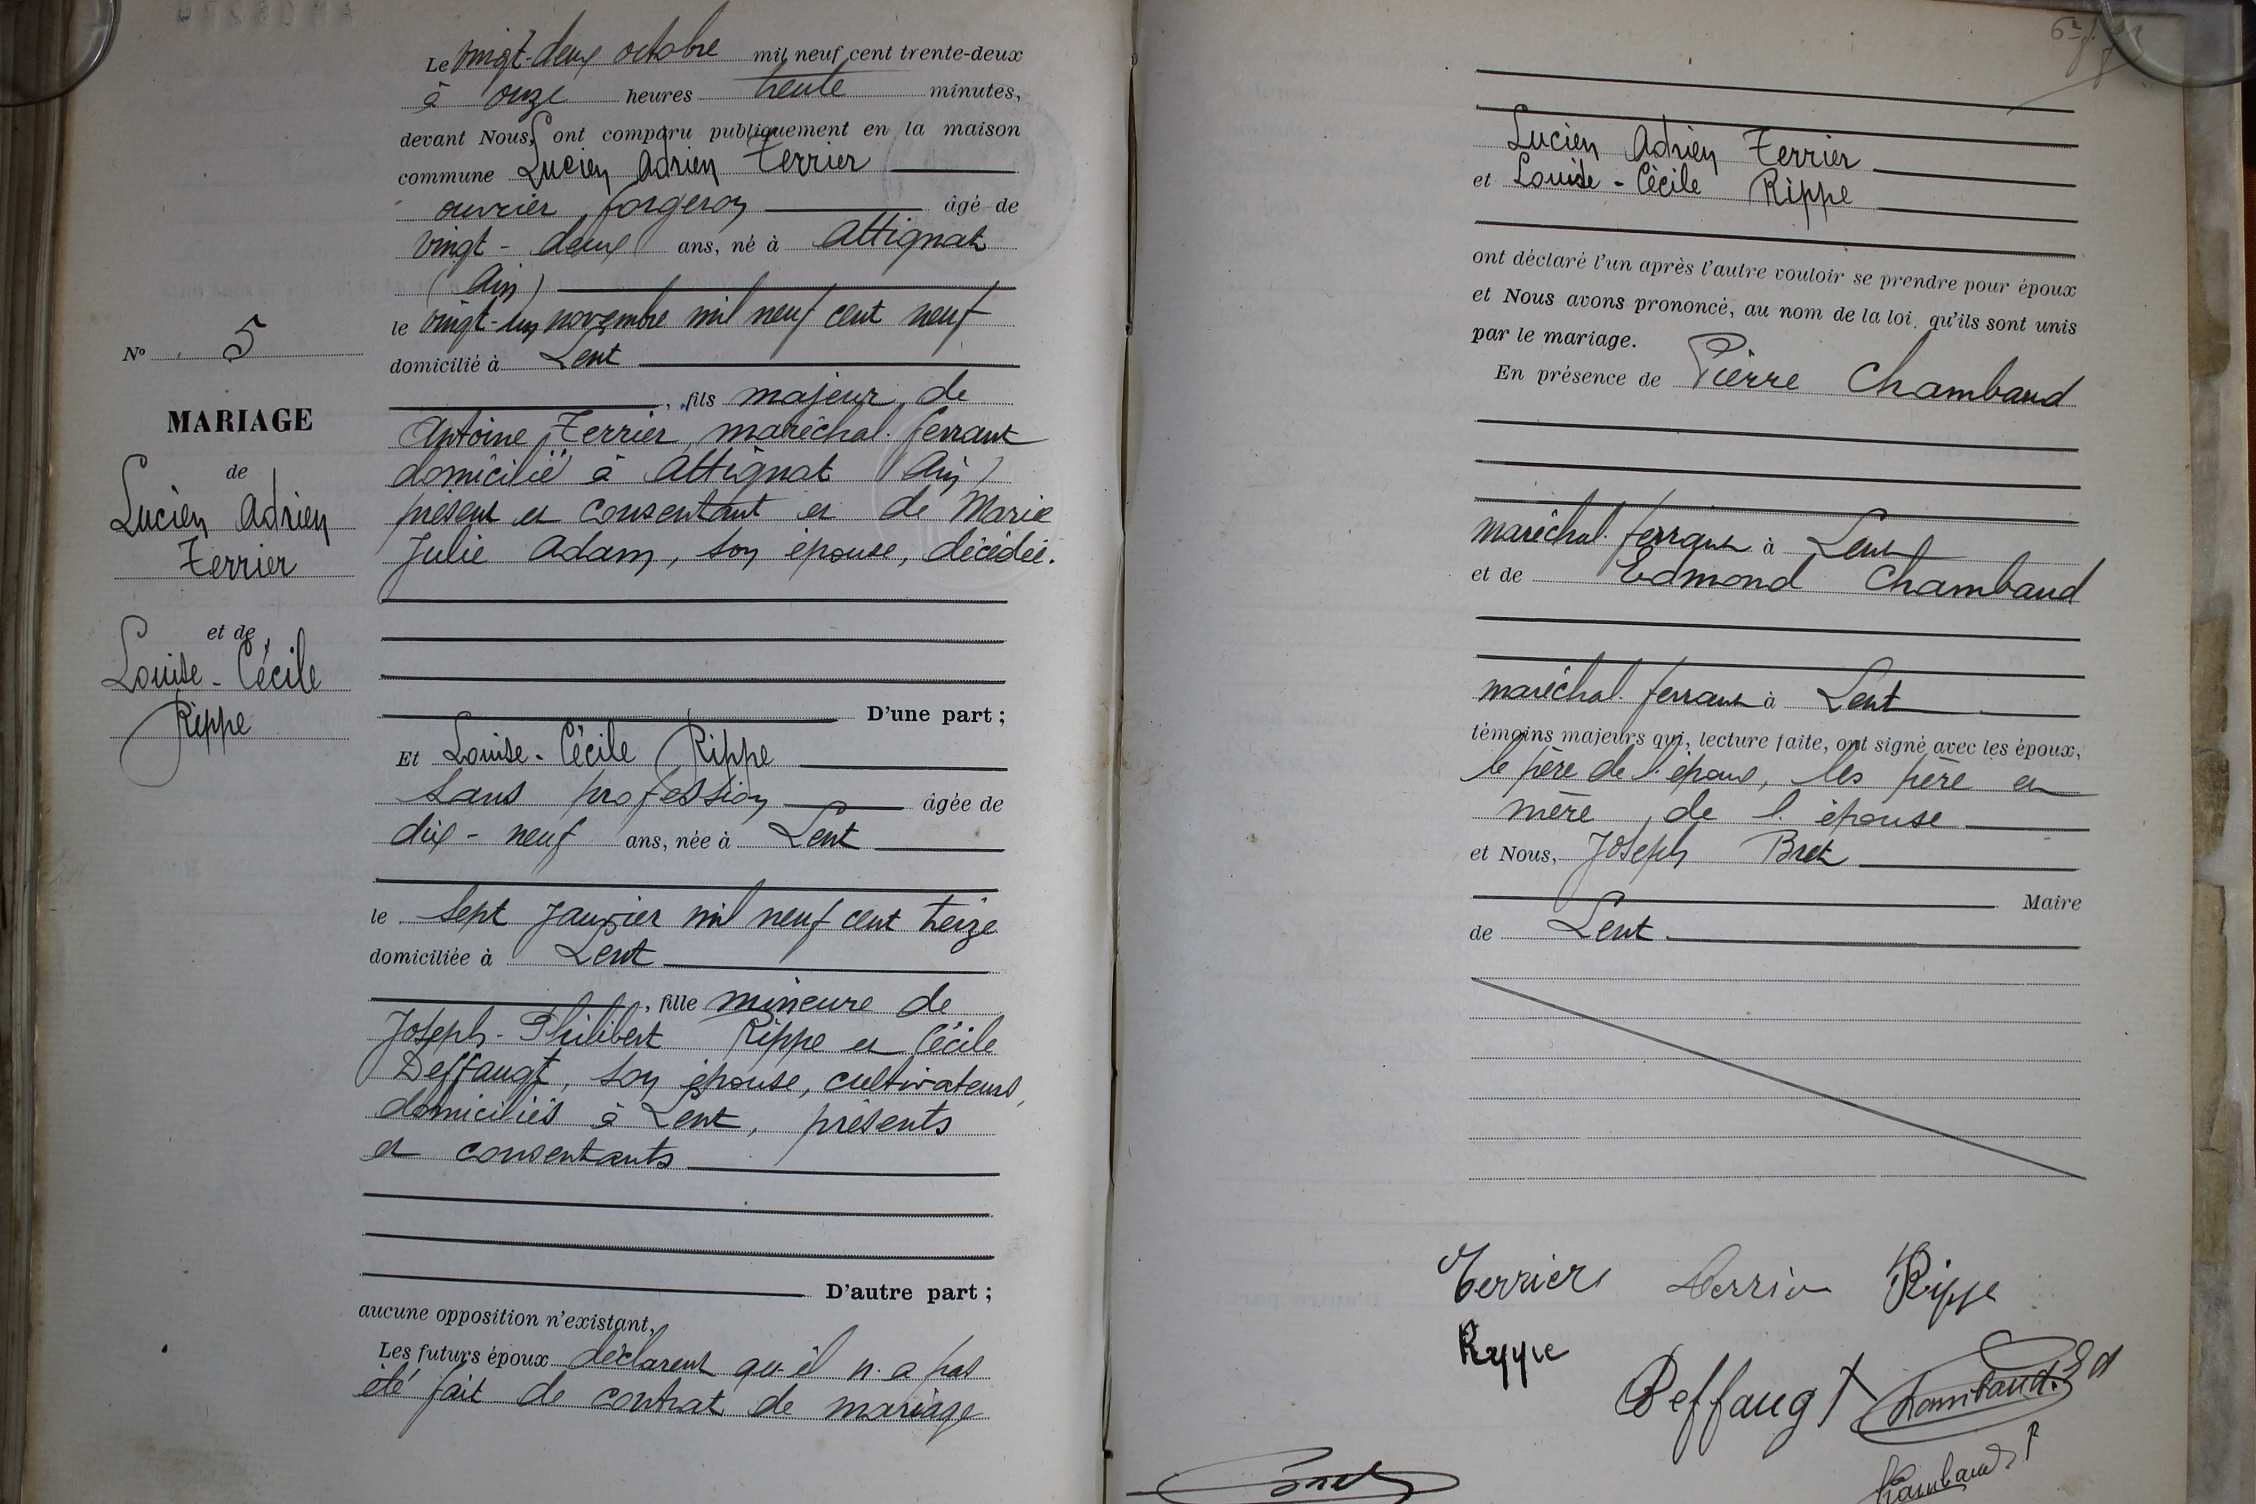 Le vingt-deux octobre mil neuf cent trente-deux
à onze heures trente minutes,
devant Nous, ont comparu publiquement en la maison
commune Lucien Adrien Terrier
ouvrier forgeron âgé de
vingt-deux ans, né à Attignat
(Ain)
le vingt-un novembre mil neuf cent neuf
domicilié à Lent
, fils majeur de
Antoine Terrier, maréchal-ferrant
domicilié à Attignat (Ain)
présent et consentant et de Marie
Julie Adam, son épouse, décédée.
D'une part ;
Et Louise-Cécile Rippe
sans profession âgée de
dix-neuf ans, née à Lent
le sept janvier mil neuf cent treize
domiciliée à Lent
, fille mineure de
Joseph-Philibert Rippe et Cécile
Deffaugt, son épouse, cultivateurs,
domiciliés à Lent, présents
et consentants
D'autre part ;
aucune opposition n'existant,
Les futurs époux déclarent qu'il n'a pas
été fait de contrat de mariage
No 5
MARIAGE
de
Lucien Adrien
Terrier
et de
Louise-Cécile
Rippe
Lucien Adrien Terrier
et Louise-Cécile Rippe
ont déclaré l'un après l'autre vouloir se prendre pour époux
et Nous avons prononcé, au nom de la loi, qu'ils sont unis
par le mariage.
En présence de Pierre Chambaud
maréchal-ferrant à Lent
et de Edmond Chambaud
maréchal-ferrant à Lent
témoins majeurs qui, lecture faite, ont signé avec les époux,
le père de l'époux, les père et
mère de l'épouse
et Nous, Joseph Bret
Maire
de Lent.
Terrier Terrier Rippe
Rippe
Deffaugt Chambaud Ed
Bret Chambaud P